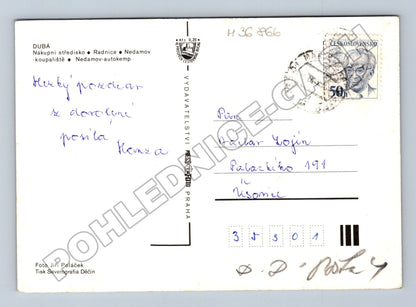 H 36 866
DUBÁ
Nákupní středisko • Radnice • Nedamov
-koupaliště • Nedamov-autokemp
ČESKOSLOVENSKO
50
Hezký pozdrav
z dovolené
posílá
Honza
VYDAVATELSTVÍ
PRAHA
Pan
Václav
Palackého 191
3 5 3 0 1
Foto Jiří Poláček
Tisk Severografia Děčín
POHLEDNICE-GALERIE